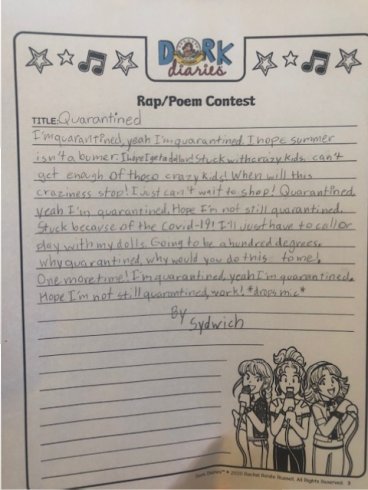 DORK
diaries
Rap/Poem Contest
TITLE: Quarantined
I'm quarantined, yeah I'm quarantined. I hope summer
isn't a bumer. I hope I get a dollar! Stuck with crazy kids. can't
get enough of those crazy kids! When will this
craziness stop! I just can't wait to shop! Quarantined
yeah I'm quarantined. Hope I'm not still quarantined.
Stuck because of the Covid-19! I'll just have to call or
play with my dolls. Going to be a hundred degrees.
Why quarantined, why would you do this to me!
One more time! I'm quarantined, yeah I'm quarantined.
Hope I'm not still quarantined, work! *drops mic*
By
Sydwich
Dork Diaries™ • 2020 Rachel Renée Russell. All Rights Reserved. 3